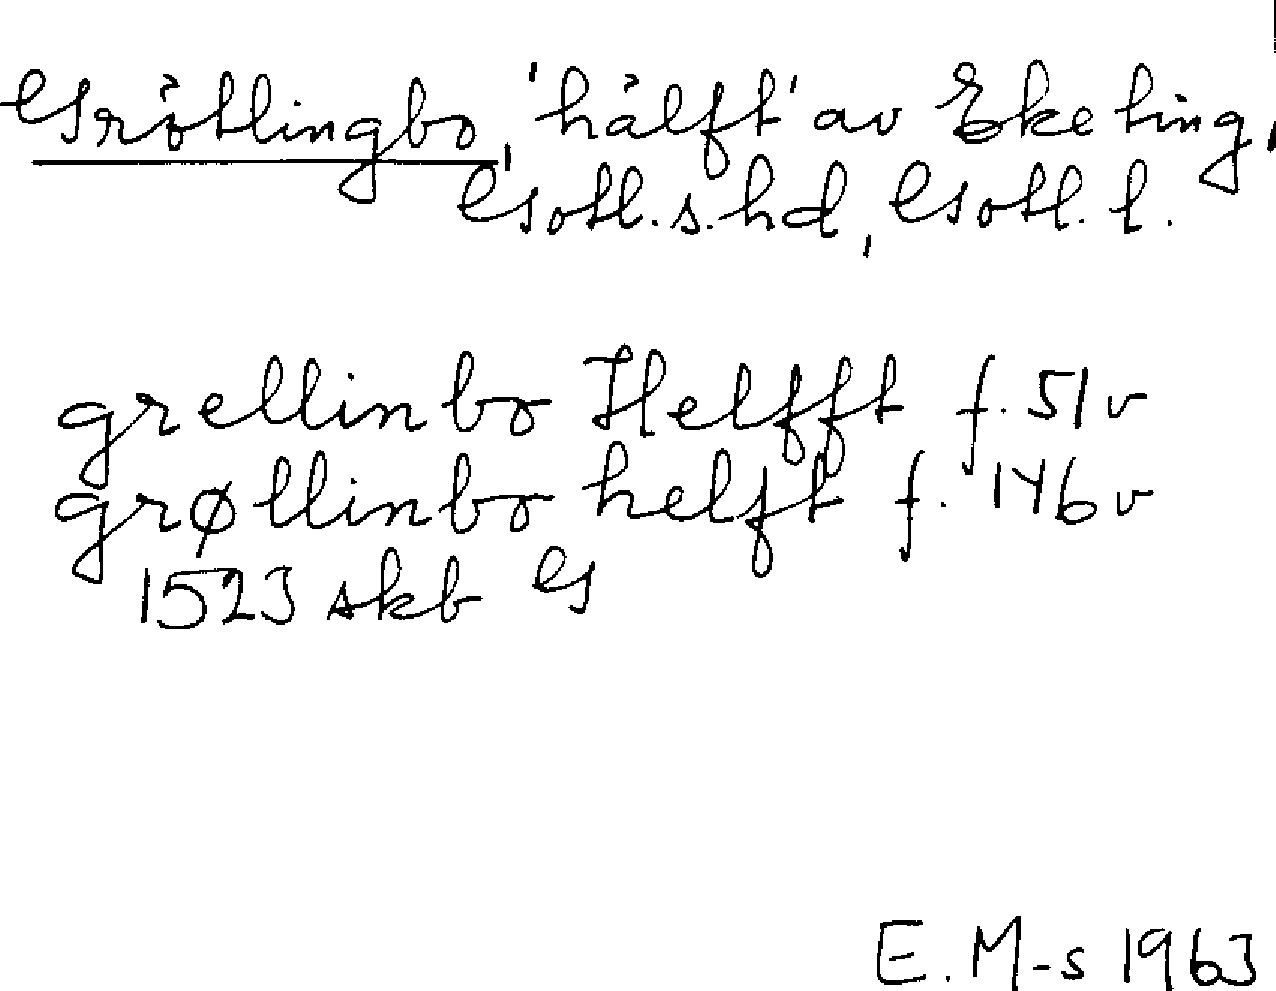 Grötlingbo, 'hälft' av Eke ting,
Gotl. s. hd, Gotl. l.
grellinbo Helfft f. 51 v
grøllinbo helft f. 146 v
1523 skb G
E. M-s 1963